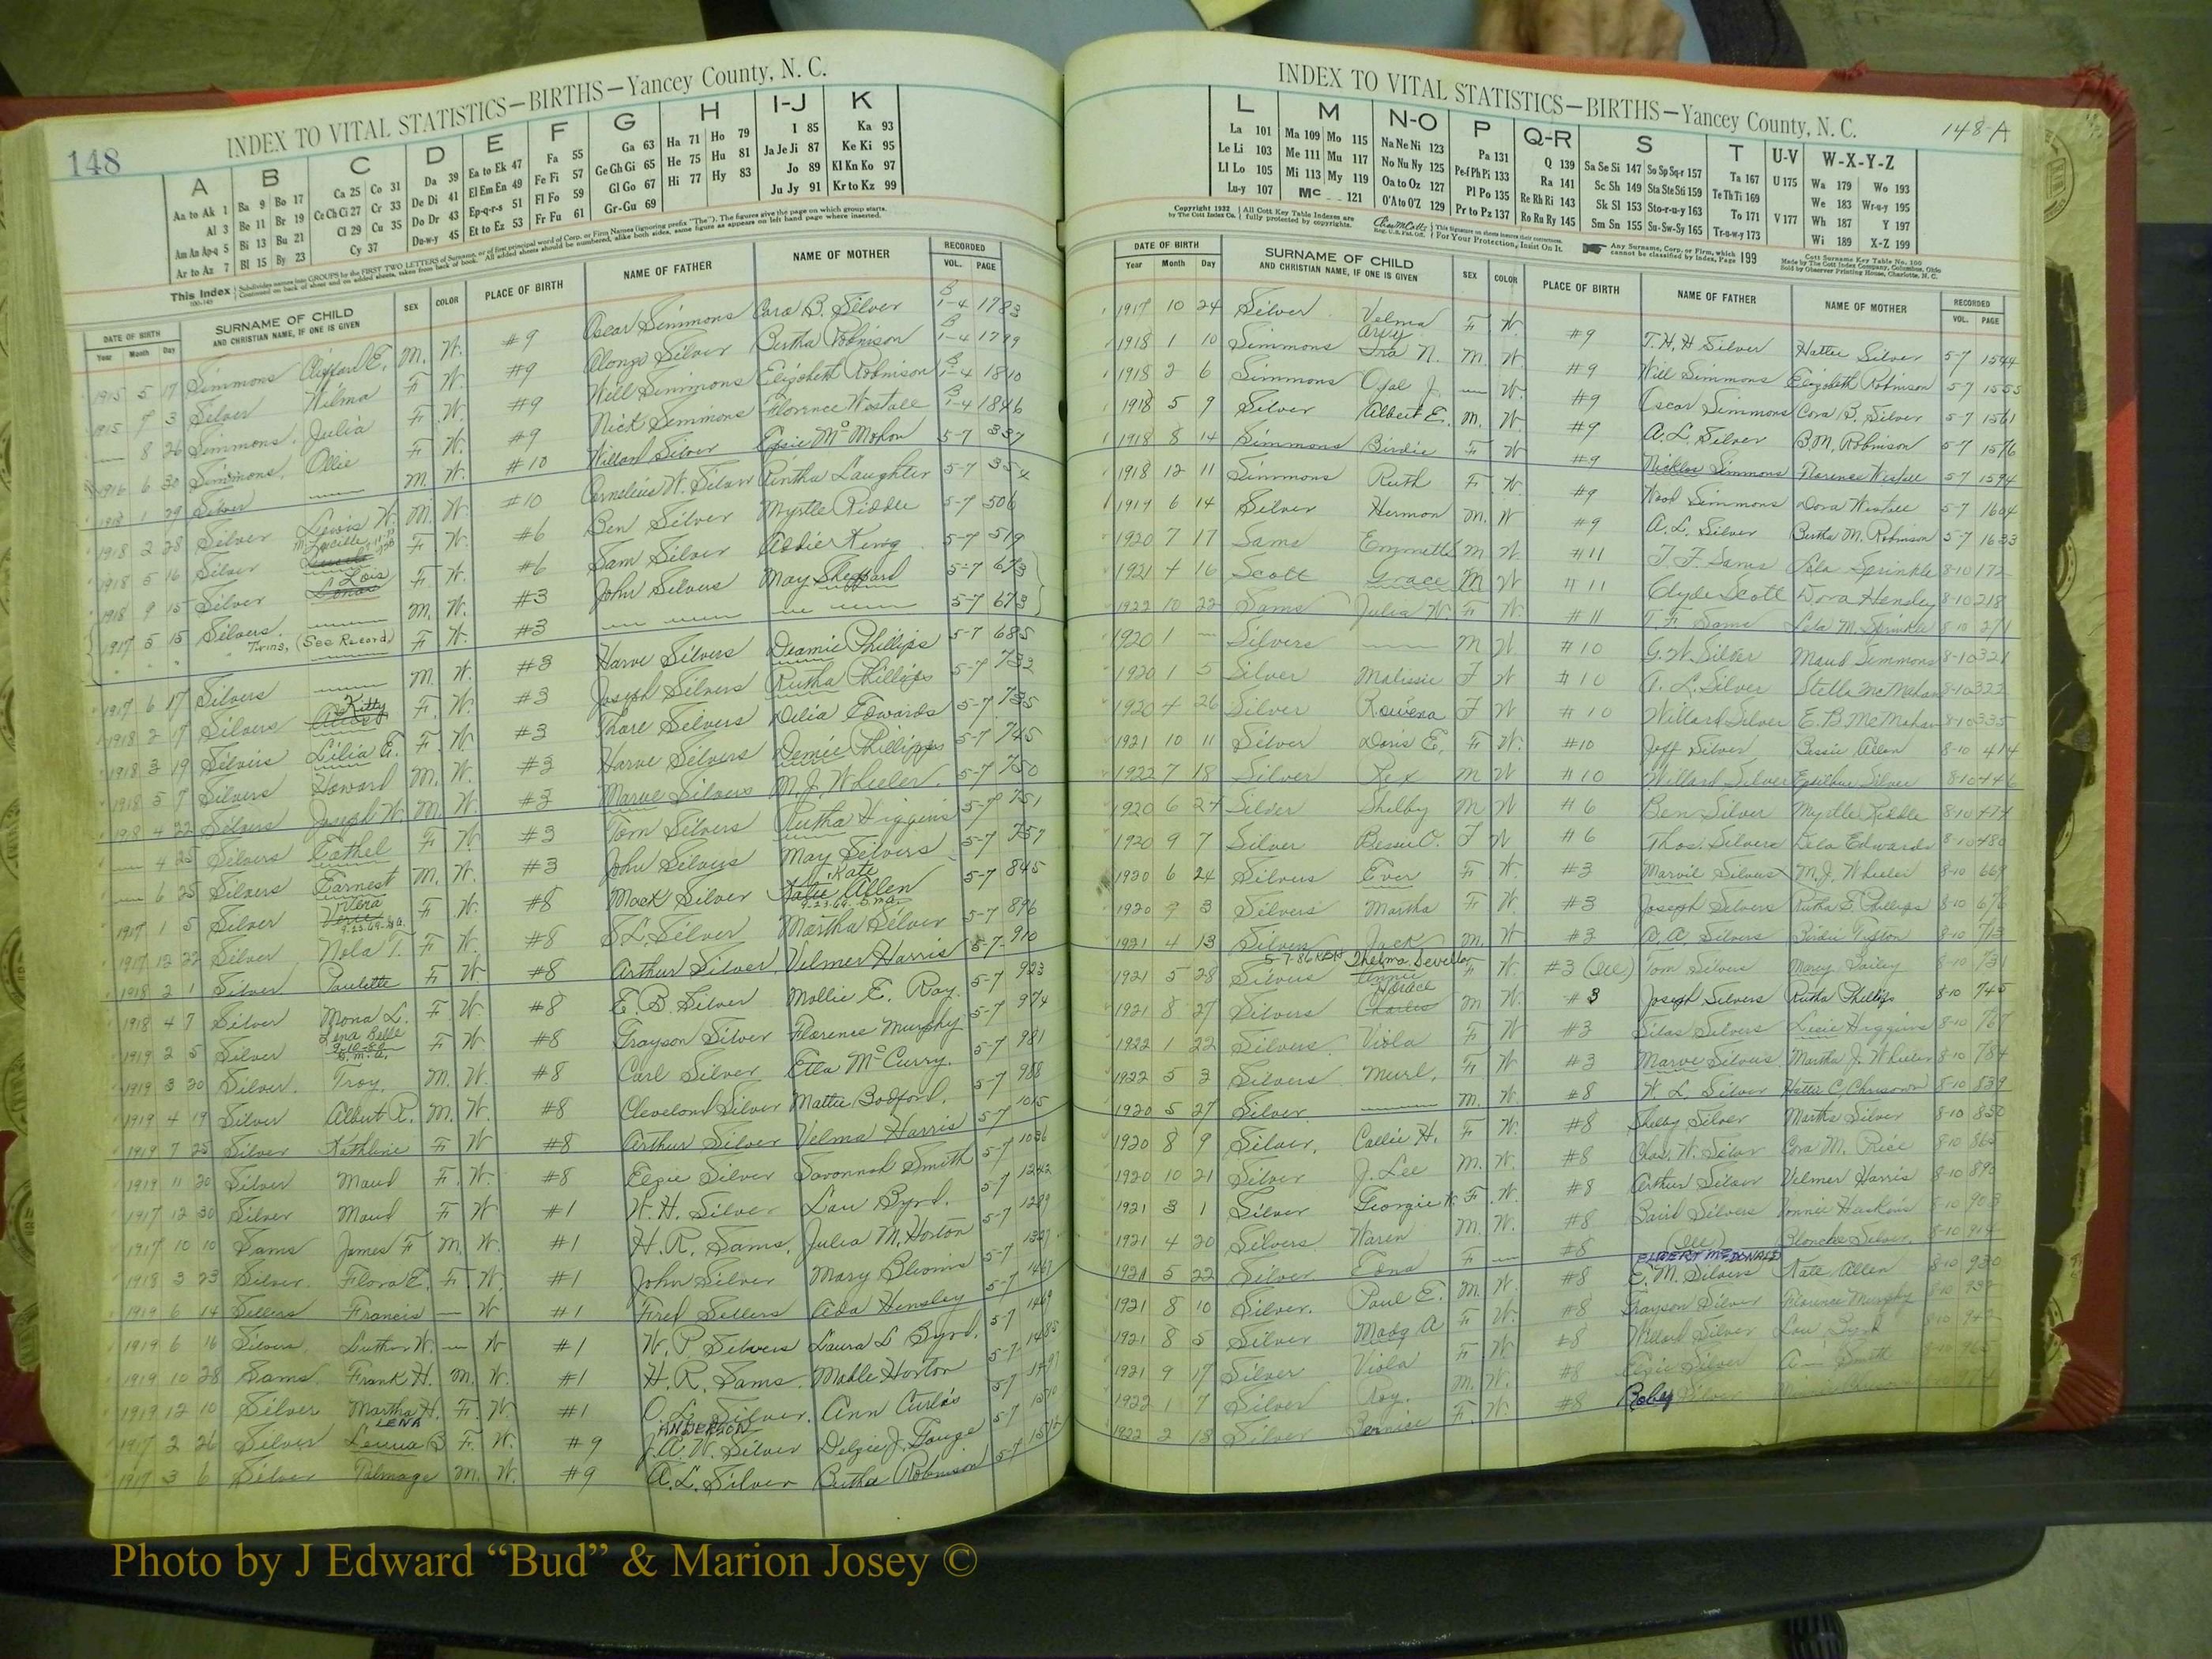 148
INDEX TO VITAL STATISTICS—BIRTHS—Yancey County, N. C.
A B C D E F G H I-J K
Aa to Ak 1 Ba 9 Bo 17 Ca 25 Co 31 Da 39 Ea to Ek 47 Fa 55 Ga 63 Ha 71 Ho 79 I 85 Ka 93
Al 3 Be 11 Br 19 Ce Ch Ci 27 Cr 33 De Di 41 El Em En 49 Fe Fi 57 Ge Gh Gi 65 He 75 Hu 81 Ja Je Ji 87 Ke Ki 95
Am An Ap-q 5 Bi 13 Bu 21 Cl 29 Cu 35 Do Dr 43 Ep-q-r-s 51 Fl Fo 59 Gl Go 67 Hi 77 Hy 83 Jo 89 Kl Kn Ko 97
Ar to Az 7 Bl 15 By 23 Cy 37 Du-w-y 45 Et to Ez 53 Fr Fu 61 Gr-Gu 69 Ju Jy 91 Kr to Kz 99
DATE OF BIRTH SURNAME OF CHILD SEX COLOR PLACE OF BIRTH NAME OF FATHER NAME OF MOTHER RECORDED
Year Month Day AND CHRISTIAN NAME, IF ONE IS GIVEN VOL. PAGE
1915 5 17 Simmons Clifford E. M. W. #9 Oscar Simmons Cora B. Silver B 1-4 1783
1915 7 3 Silver Wilma F W. #9 Alonzo Silver Bertha Robinson B 1-4 1799
8 26 Simmons Julia F. W. #9 Will Simmons Elizabeth Robinson B 1-4 1810
1916 6 30 Simmons Ollie F. W. #9 Nick Simmons Florence Westall B 1-4 1846
1918 1 29 Silver M. W. #10 Willard Silver Essie McMahon 5-7 337
1918 2 28 Silver Lewis W. M. W. #10 Cornelius W. Silver Rintha Laughter 5-7 354
1918 5 16 Silver M. Lucille F. W. #6 Ben Silver Myrtle Riddle 5-7 506
1918 9 15 Silver Lois F. W. #6 Sam Silver Addie King 5-7 519
1917 5 15 Silvers M. W. #3 John Silvers May Sheppard 5-7 673
" " " Twins, (See Record) F. W. #3 5-7 673
1917 6 17 Silvers M. W. #3 Harve Silvers Deamie Phillips 5-7 685
1918 2 17 Silvers Kitty F. W. #3 Joseph Silvers Rutha Phillips 5-7 732
1918 3 19 Silvers Lilia E. F. W. #3 Thare Silvers Delia Edwards 5-7 735
1918 5 7 Silvers Howard M. W. #3 Harve Silvers Demie Phillips 5-7 745
1918 4 22 Silvers Joseph W. M. W. #3 Marve Silvers M. J. Wheeler 5-7 750
4 25 Silvers Eathel F W. #3 Tom Silvers Rutha Higgins 5-7 751
6 25 Silvers Earnest M. W. #3 John Silvers May Silvers 5-7 757
1917 1 5 Silver Vera F W. #8 Mack Silver Kate Allen 5-7 845
1917 12 22 Silver Nola T. F. W. #8 S. L. Silver Martha Silver 5-7 896
1918 2 1 Silver Paulette F W. #8 Arthur Silver Velmer Harris 5-7 910
1918 4 7 Silver Mona L. F W. #8 E. B. Silver Mollie E. Ray 5-7 923
1919 2 5 Silver Lena Belle F W. #8 Grayson Silver Florence Murphy 5-7 974
1919 3 30 Silver Troy. M. W. #8 Carl Silver Etta McCurry. 5-7 981
1919 4 19 Silver Albert R. M. W. #8 Cleveland Silver Mattie Bodford. 5-7 988
1919 7 25 Silver Kathline F W #8 Arthur Silver Velma Harris 5-7 1015
1919 11 20 Silver Maud F. W. #8 Elzie Silver Savonnah Smith 5-7 1036
1917 12 30 Silver Maud F W #1 W. H. Silver Lou Byrd. 5-7 1242
1917 10 10 Sams James F M. W. #1 H. R. Sams. Julia M. Horton 5-7 1289
1918 3 23 Silver. Flora E. F. W. #1 John Silver Mary Blooms 5-7
1919 6 14 Sellers Francis — W #1 Fred Sellers Ada Hensley 5-7
1919 6 16 Silvers. Luther W. — W #1 W. P. Silvers Laura L Byrd. 5-7 1469
1919 10 28 Sams Frank H. M. W. #1 H. R. Sams. Mable Horton 5-7 1485
1919 12 10 Silver Martha H. F. W. #1 Silver. Ann Curtis 5-7
1917 2 26 Silver LENA F. W. #9 ANDERSON J. A. W. Silver Delzie J. Gouge 5-7
1917 3 6 Silver Talmage M. W. #9 A. L. Silver Bertha Robinson 5-7
148-A
INDEX TO VITAL STATISTICS—BIRTHS—Yancey County, N. C.
L M N-O P Q-R S T U-V W-X-Y-Z
La 101 Ma 109 Mo 115 Na Ne Ni 123 Pa 131 Q 139 Sa Se Si 147 So Sp Sq-r 157 Ta 167 U 175 Wa 179 Wo 193
Le Li 103 Me 111 Mu 117 No Nu Ny 125 Pe-f Ph Pi 133 Ra 141 Sc Sh 149 Sta Ste Sti 159 Te Th Ti 169 We 183 Wr-u-y 195
Ll Lo 105 Mi 113 My 119 Oa to Oz 127 Pl Po 135 Re Rh Ri 143 Sk Sl 153 Sto-r-u-y 163 To 171 V 177 Wh 187 Y 197
Lu-y 107 Mc 121 O'A to O'Z 129 Pr to Pz 137 Ro Ru Ry 145 Sm Sn 155 Su-Sw-Sy 165 Tr-u-w-y 173 Wi 189 X-Z 199
Copyright 1932 by The Cott Index Co. All Cott Key Table Indexes are fully protected by copyrights. This signature on sheets insures their correctness. For Your Protection, Insist On It. Any Surname, Corp. or Firm, which cannot be classified by Index, Page 199
Cott Surname Key Table No. 100
Made by The Cott Index Company, Columbus, Ohio
Sold by Observer Printing House, Charlotte, N. C.
DATE OF BIRTH SURNAME OF CHILD SEX COLOR PLACE OF BIRTH NAME OF FATHER NAME OF MOTHER RECORDED
Year Month Day AND CHRISTIAN NAME, IF ONE IS GIVEN VOL. PAGE
1917 10 24 Silver Velma F W #9 T. H. H Silver Hattie Silver 5-7 1544
1918 1 10 Simmons Ira N. M. W. #9 Will Simmons Elizabeth Robinson 5-7 1555
1918 2 6 Simmons Opal J. — W. #9 Oscar Simmons Cora B. Silver 5-7 1561
1918 5 9 Silver Albert E. M. W. #9 A. L. Silver B. M. Robinson 5-7 1576
1918 8 14 Simmons Birdie F W #9 Nicklos Simmons Florence Westall 5-7 1594
1918 12 11 Simmons Ruth F. W. #9 Wood Simmons Dora Westall 5-7 1604
1919 6 14 Silver Hermon M. W #9 A. L. Silver Bertha M. Robinson 5-7 1633
1920 7 17 Sams Emmett M W #11 T. F. Sams Lela Sprinkle 8-10 172
1921 4 16 Scott Grace M W #11 Clyde Scott Dora Hensley 8-10 218
1922 10 22 Sams Julia W. F W. #11 T. F. Sams Lela M. Sprinkle 8-10 271
1920 1 — Silvers M W #10 G. W. Silver Maud Simmons 8-10 321
1920 1 5 Silver Malissie F W #10 A. L. Silver Stella McMahan 8-10 322
1920 4 26 Silver Rowena F W #10 Willard Silver E. B McMahan 8-10 335
1921 10 11 Silver Doris E. F W. #10 Jeff Silver Bessie Allen 8-10 414
1922 7 18 Silver Rex M W #10 Willard Silver Silver 8-10 446
1920 6 27 Silver Shelby M W #6 Ben Silver Myrtle Riddle 8-10 474
1920 9 7 Silver Bessie O. F W #6 Thos. Silvers Dela Edwards 8-10 480
1920 6 24 Silvers Ever F W. #3 Marvil Silvers M. J. Wheeler 8-10 669
1920 9 3 Silvers Martha F W. #3 Joseph Silvers Rutha E. Phillips 8-10
1921 4 13 Silvers Jack M. W #3 Silvers 8-10 713
1921 5 28 Silvers 5-7-86 Thelma F W. #3 (See) Tom Silvers Mary Bailey 8-10 731
1921 8 27 Silvers Horace M W. #3 Joseph Silvers Rutha Phillips 8-10 745
1922 1 22 Silvers Viola F W #3 Silas Silvers Lisie Higgins 8-10 767
1922 5 3 Silvers Murl. F W. #3 Marve Silvers Martha J. Wheeler 8-10 784
1920 5 27 Silver M. W. #8 W. L. Silver Hattie C. Chrisawn 8-10 839
1920 8 9 Silver. Callie H. F W. #8 Shelby Silver Martha Silver 8-10 850
1920 10 21 Silver J. Lee M. W. #8 Chas. W. Silver Cora M. Rice 8-10
1921 3 1 Silver Georgie F. W. #8 Arthur Silver Velmer Harris 8-10 890
1921 4 20 Silvers Waren M. W. #8 Baird Silvers Vonnie Haskins 8-10 903
1921 5 22 Silver Edna F — #8 (See) Blanche Silver. 8-10
1921 8 10 Silver. Paul E. M. W. #8 ELBERT McDONALD E. M. Silvers Kate Allen 8-10 930
1921 8 5 Silver Madg A F W. #8 Grayson Silver Florence Murphy 8-10
1921 9 17 Silver Viola F W. #8 Willard Silver Lou Byrd 8-10
1922 1 7 Silver Roy. M. W. #8 Elzie Silver Smith
1922 2 18 Silver Bernice F. W. #8 Robey Silver
Photo by J Edward “Bud” & Marion Josey ©